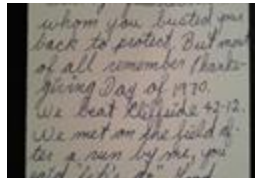 whom you busted your
back to protect. But most
of all remember Thanks-
giving Day of 1970.
We beat Cliffside 42-12.
We met on the field af-
ter a run by me, you
said "let's do"